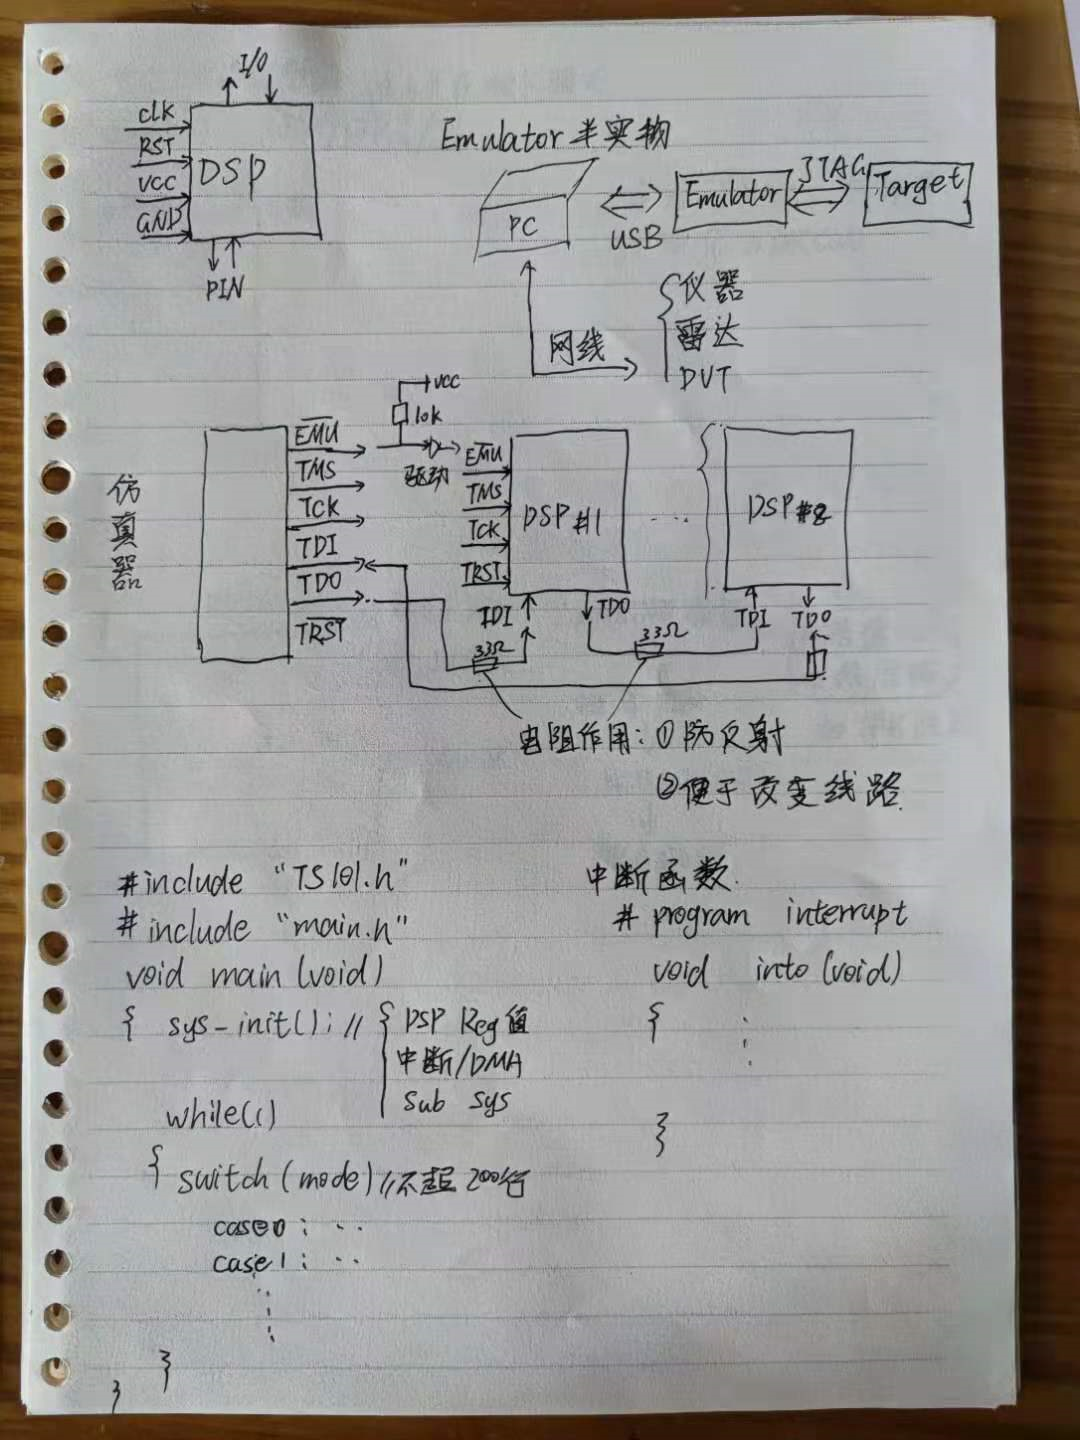 I/O
CLK
RST
VCC
GND
DSP
PIN
Emulator 半实物
PC
USB
Emulator
JTAG
Target
网线
仪器
雷达
DVT
仿真器
EMU
TMS
TCK
TDI
TDO
TRST
VCC
10k
驱动
EMU
TMS
TCK
TRST
DSP #1
TDI
TDO
33Ω
33Ω
...
DSP #8
TDI
TDO
电阻作用: ①防反射
②便于改变线路.
#include "TS101.h"
#include "main.h"
void main (void)
{ sys_init(); // { DSP Reg 值
中断/DMA
Sub sys
while(1)
{ switch (mode) //不超200行
case0: ..
case1: ..
}
}
中断函数.
# program interrupt
void into (void)
{
}